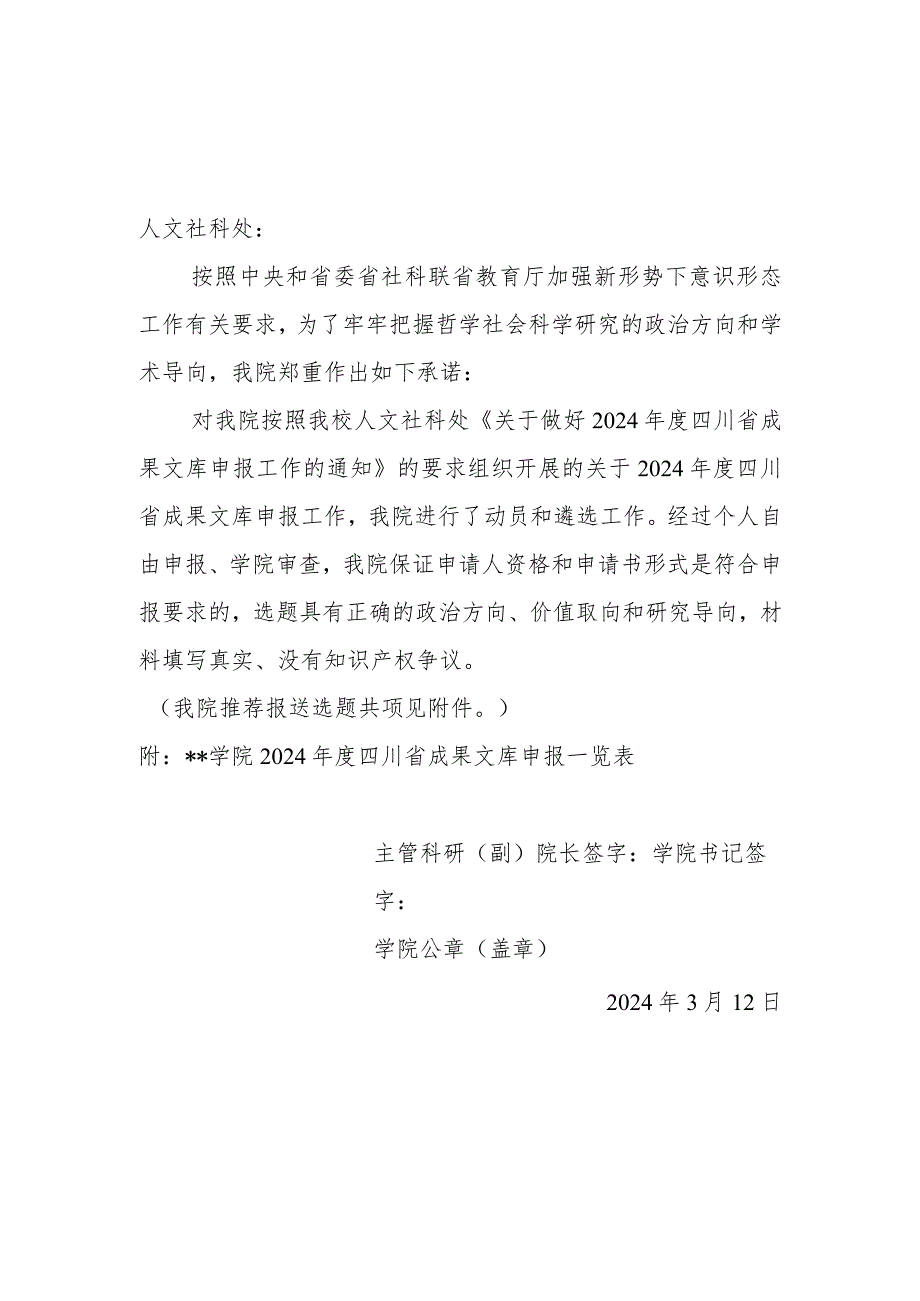 人文社科处：
按照中央和省委省社科联省教育厅加强新形势下意识形态
工作有关要求，为了牢牢把握哲学社会科学研究的政治方向和学
术导向，我院郑重作出如下承诺：
对我院按照我校人文社科处《关于做好 2024 年度四川省成
果文库申报工作的通知》的要求组织开展的关于 2024 年度四川
省成果文库申报工作，我院进行了动员和遴选工作。经过个人自
由申报、学院审查，我院保证申请人资格和申请书形式是符合申
报要求的，选题具有正确的政治方向、价值取向和研究导向，材
料填写真实、没有知识产权争议。
（我院推荐报送选题共项见附件。）
附：**学院 2024 年度四川省成果文库申报一览表
主管科研（副）院长签字：学院书记签
字：
学院公章（盖章）
2024 年 3 月 12 日